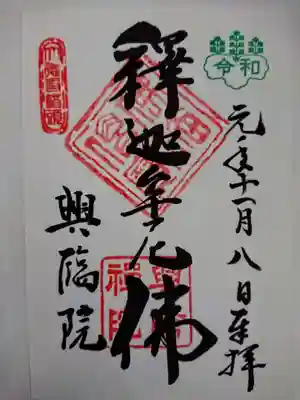 令和
元年十一月八日奉拝
釋迦牟尼佛
興臨院